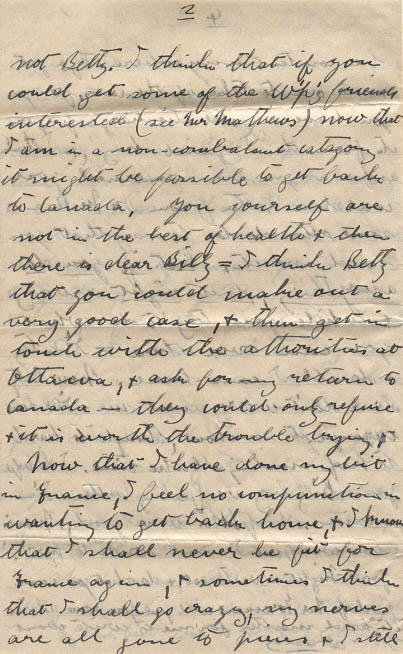 2
not Betty. I think that if you
could get some of the Wpg friends
interested (see Mr Mathews) now that
I am in a non-combatant catagory
it might be possible to get back
to Canada, You yourself are
not in the best of health & then
there is dear Billy = I think Betty
that you could make out a
very good case, & then get in
touch with the athorities at
Ottawa, & ask for my return to
Canada — they could only refuse
& it is worth the trouble trying,
Now that I have done my bit
in France, I feel no compunction in
wanting to get back home, & I know
that I shall never be fit for
France again, & sometimes I think
that I shall go crazy, my nerves
are all gone to pieces & I still